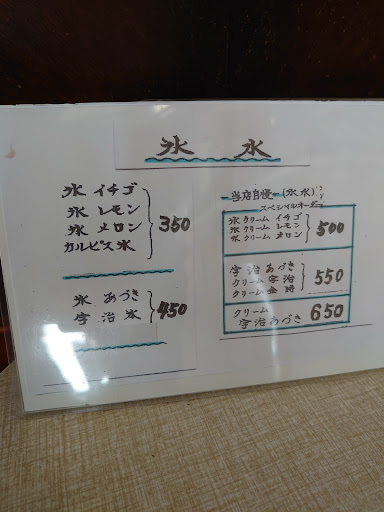 氷水
氷イチゴ
氷レモン
氷メロン
カルピス氷
350
氷あづき
宇治氷
450
当店自慢(氷水)
スペシャルオーダー
氷クリームイチゴ
氷クリームレモン
氷クリームメロン
500
宇治あづき
クリーム宇治
クリーム金時
550
クリーム
宇治あづき
650